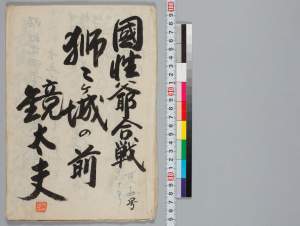 國性爺合戦
獅子ヶ城の前
鏡太夫